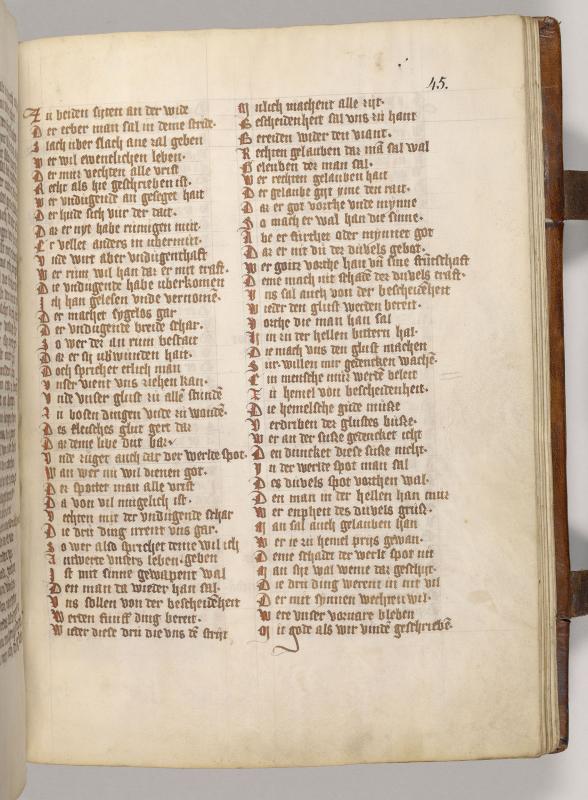 45.
Zu beiden siten an der wide
Der erber man sal in deme stride
Slach wider slach ane zal geben
Wer wil ewentlichen leben.
Der muz vechten alle vrist
Recht als hie geschrieben ist.
Wer vndugende an geseget hait
Der hude sich vur der dait.
Daz er nyt habe rinnigen mut
Er vellet anders in vbermut.
Vnde wirt aber vndugenthaft
Wer rum wil han daz er mit craft.
Die vndugende habe vberkomen
Ich han gelesen vnde vernomē.
Der machet sygelos gar
Der vndugende breide schar.
So wer der an rum bestait
Daz er sy vbwunden hait.
Doch spricher etlich man
Vnser vient vns ziehen kan.
Vnde vnser glust zu alle stundē
Zu bosen dingen vnde zu wondē.
Des fleisches glut gert daz
Daz deme libe dut baz.
Vnde ruget auch daz der werlte spot.
Wan wer nu wil dienen got.
Der spottet man alle vrist
Da von vil mugelich ist.
Vechten mit der vndugende schar
Die dri ding irrent vns gar.
So wer also sprichet deme wil ich
Antwerte vnsers leben geben
Ist mit sinne gewapent wal
Den man da wieder han sal.
Vns sollen von der bescheidēheit
Werden funiff ding bereit.
Wieder diese dri die vns dē strijt
Mulich machent alle zijt.
Bescheidenheit sal vns zu hant
Bereiden wider den viant.
Rechten gelauben daz mā sal wal
Geleuben der man sal.
Wer rechten gelauben hait
Der gelaube git yme den rait.
Daz er got vorthe vnde mynne
So mach er wal han die sinne.
Abe er furchtet oder mynnet got
Daz er nit dut der duvels gebot.
Wer gotz vorthe hait vn sine fruntschaft
Deme mach nit schadē der duvels craft.
Vns sal auch von der bescheidēheit
Wieder den glust werden bereit.
Vorthe die man han sal
In zu der hellen bittern hal.
Die mach vns den glust machen
Sur willen mit gedencken wachē.
Ein mensche muz werdē beleit
Zu hemel von bescheidenheit.
Die hemelsche gude musze
Verdriben der glustes busze.
Wer an der susze gedencket icht
Den duncket diese susze nicht.
In der werlte spot man sal
Des duvels spot vorthen wal.
Den man in der hellen han muz
Wer enpheit des duvels grusz.
Man sal auch gelauben han
Wer ie zu hemel prijs gewan.
Deme schadet der werlt spot nit
Man syt wal weme daz geschijt.
Die dri ding werent in nit vil
Der mit synnen vechten wil.
Were vnser vorware bleben
Mit gode als wir vinde geschriebē.